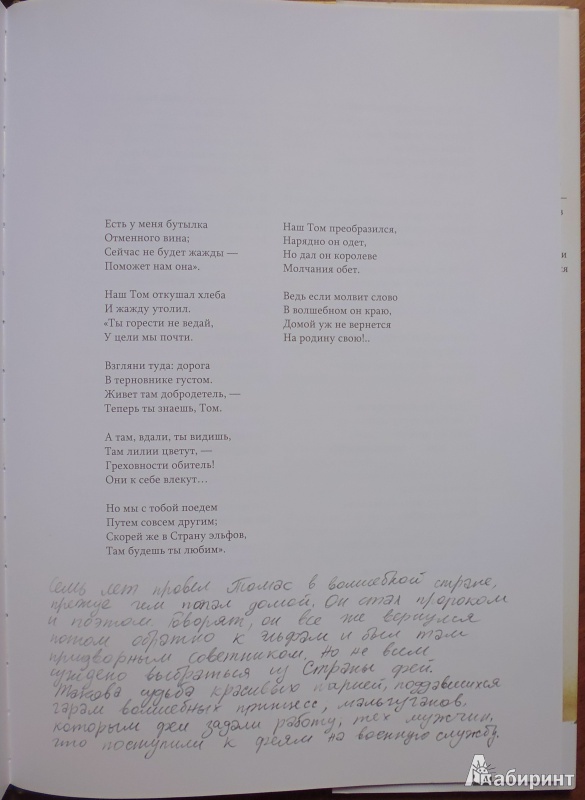 Есть у меня бутылка
Отменного вина;
Сейчас не будет жажды —
Поможет нам она».
Наш Том откушал хлеба
И жажду утолил.
«Ты горести не ведай,
У цели мы почти.
Взгляни туда: дорога
В терновнике густом.
Живет там добродетель, —
Теперь ты знаешь, Том.
А там, вдали, ты видишь,
Там лилии цветут, —
Греховности обитель!
Они к себе влекут…
Но мы с тобой поедем
Путем совсем другим;
Скорей же в Страну эльфов,
Там будешь ты любим».
Наш Том преобразился,
Нарядно он одет,
Но дал он королеве
Молчания обет.
Ведь если молвит слово
В волшебном он краю,
Домой уж не вернется
На родину свою!..
Семь лет провел Томас в волшебной стране,
прежде чем попал домой. Он стал пророком
и поэтом. Говорят, он все же вернулся
потом обратно к эльфам и был там
придворным советником. Но не всем
суждено выбраться из Страны фей.
Такова судьба красивых парней, поддавшихся
чарам волшебных принцесс, мальчуганов,
которым феи задали работу, тех мужчин,
что поступили к феям на военную службу.
Лабиринт